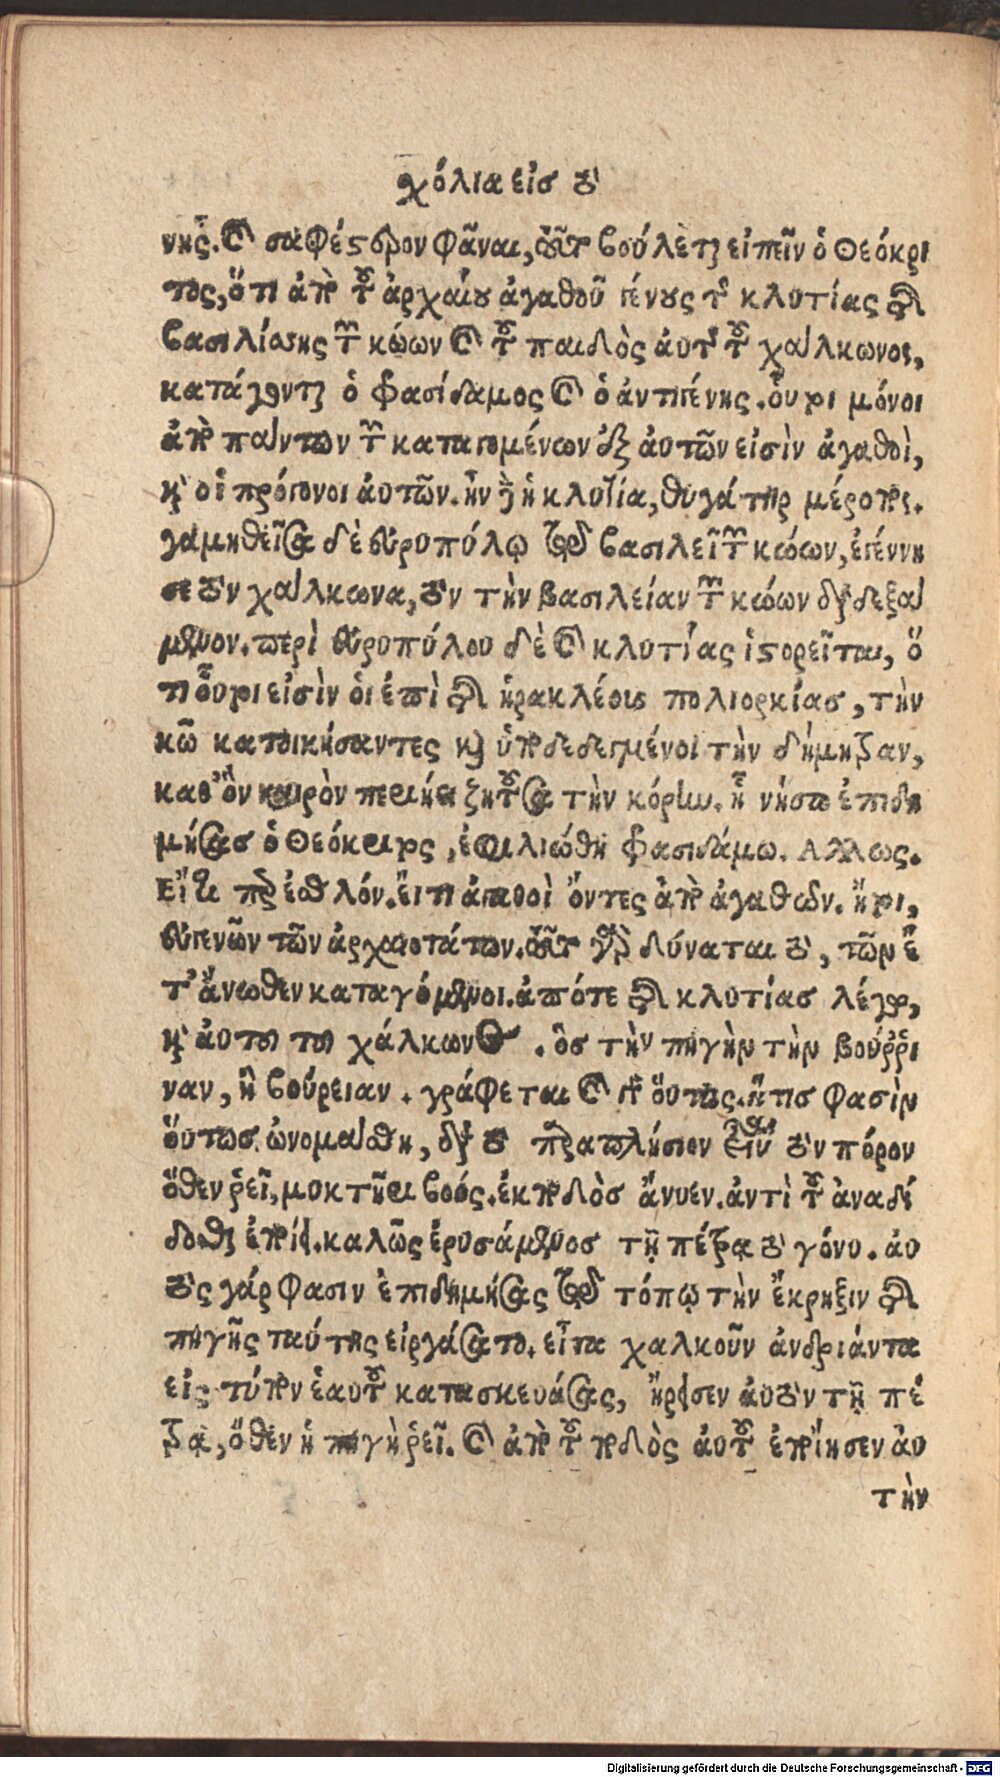 χόλια εἰσ τὸ
νης. καὶ σαφέστερον φᾶναι, τοῦτο βούλεται εἰπεῖν ὁ Θεόκρι
τος, ὅτι ἀπὸ τοῦ ἀρχαίου ἀγαθοῦ γένους τῆς κλυτίας τῆς
βασιλίδης τῶν κώων καὶ τοῦ παιδὸς αὐτῆς τοῦ χάλκωνος,
κατάγονται ὁ φρασίδαμος καὶ ὁ ἀντιγένης. οὗτοι μόνοι
ἀπὸ πάντων τῶν καταγομένων ἐξ αὐτῶν εἰσὶν ἀγαθοὶ,
καὶ οἱ πρόγονοι αὐτῶν. ἦν γὰρ ἡ κλυτία, θυγάτηρ μέροπος.
γαμηθεῖσα δὲ εὐρυπύλῳ τῷ βασιλεῖ τῶν κώων, ἐγέννη
σε τὸν χάλκωνα, τὸν τὴν βασιλείαν τῶν κώων διαδεξά
μενον. περὶ εὐρυπύλου δὲ καὶ κλυτίας ἱστορεῖται, ὅ
τι οὗτοι εἰσὶν οἱ ἐπὶ τῆς ἡρακλέους πολιορκίασ, τὴν
κῶ κατοικήσαντες καὶ ὑποδεδεγμένοι τὴν δήμητραν,
καθ' ὃν καιρὸν περιῄει ζητοῦσα τὴν κόρην. τῇ νήσῳ ἐπιδη
μήσασ ὁ Θεόκριτος, ἐφιλιώθη φρασιδάμω. Αλλως.
Εἴ τι περ ἐσθλόν. εἴ τι ἀγαθοὶ ὄντες ἀπὸ ἀγαθῶν. ἤτοι,
εὐγενῶν τῶν ἀρχαιοτάτων. τοῦτο γὰρ δύναται τὸ, τῶν ἔ
τ' ἄνωθεν καταγόμενοι. ἀπότε τῆς κλυτίασ λέγω,
καὶ αὐτοῦ τοῦ χάλκωνος. ὃσ τὴν πηγὴν τὴν βούρρι
ναν, ἢ βούρειαν. γράφεται καὶ γὰρ οὕτως. ἥτισ φασὶν
οὕτωσ ὠνομάσθη, διὰ τὸ παραπλήσιον εἶναι τὸν πόρον
ὅθεν ῥεῖ, μυκτῆρι βοός. ἐκ ποδὸσ ἄνυεν. ἀντὶ τοῦ ἀναδί
δοσθαι ἐποίει. καλῶς ἐρυσάμενοσ τῇ πέτρᾳ τὸ γόνυ. αὐ
τὸς γάρ φασιν ἐπιδημήσας τῷ τόπῳ τὴν ἔκρηξιν τῆς
πηγῆς ταύτης εἰργάσατο. εἶτα χαλκοῦν ἀνδριάντα
εἰς τύπον ἑαυτοῦ κατασκευάσας, ἤρεισεν αὐτὸν τῇ πέ
τρᾳ, ὅθεν ἡ πηγὴ ῥεῖ. καὶ ἀπὸ τοῦ ποδὸς αὐτοῦ ἐποίησεν αὐ
τὴν
Digitalisierung gefördert durch die Deutsche Forschungsgemeinschaft - DFG